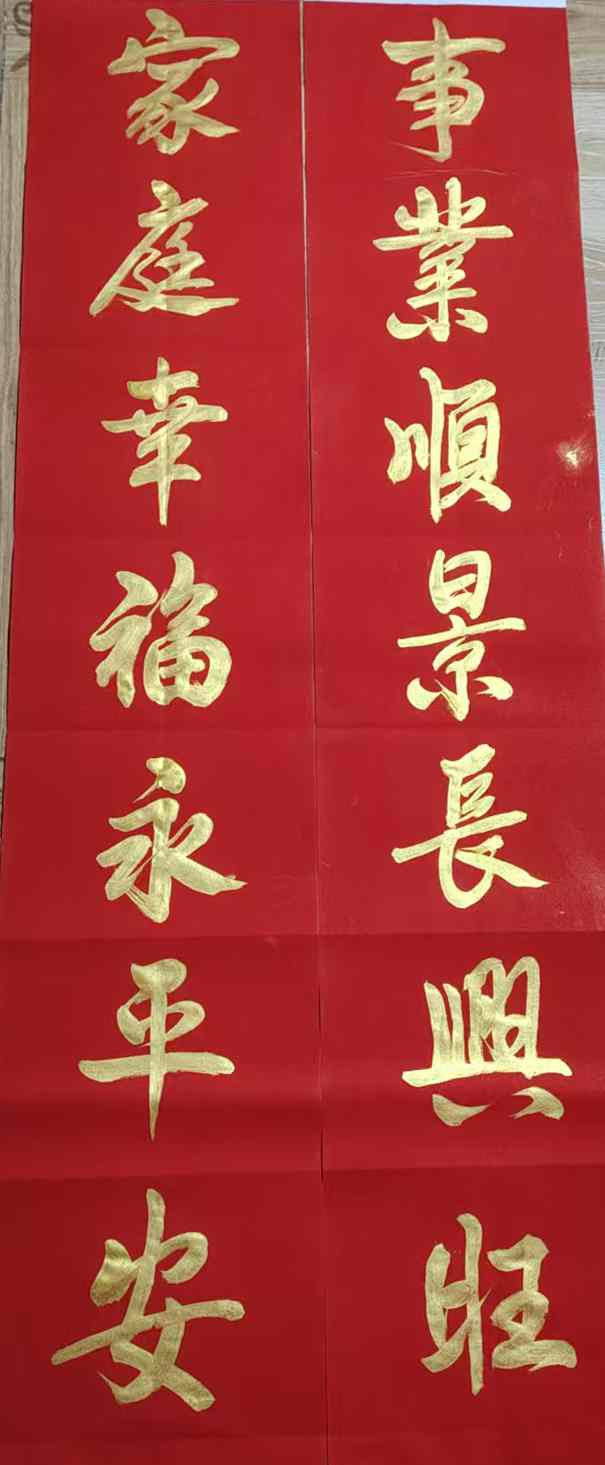 事業順景長興旺
家庭幸福永平安